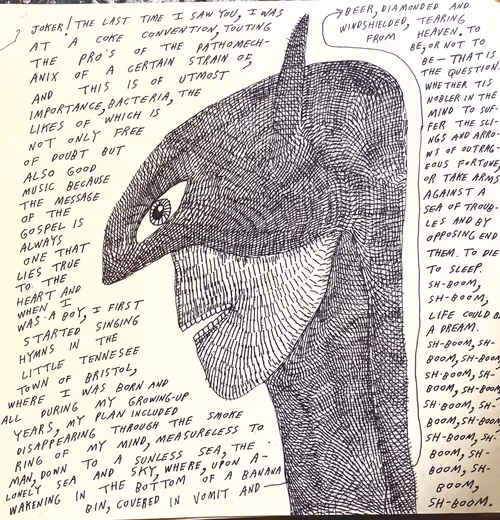 JOKER! THE LAST TIME I SAW YOU, I WAS
AT A COKE CONVENTION, TOUTING
THE PRO'S OF THE PATHOMECH-
ANIX OF A CERTAIN STRAIN OF,
AND THIS IS OF UTMOST
IMPORTANCE, BACTERIA, THE
LIKES OF WHICH IS
NOT ONLY FREE
OF DOUBT BUT
ALSO GOOD
MUSIC BECAUSE
THE MESSAGE
OF THE
GOSPEL IS
ALWAYS
ONE THAT
LIES TRUE
TO THE
HEART AND
WHEN I
WAS A BOY, I FIRST
STARTED SINGING
HYMNS IN THE
LITTLE TENNESEE
TOWN OF BRISTOL,
WHERE I WAS BORN AND
ALL DURING MY GROWING-UP
YEARS, MY PLAN INCLUDED
DISAPPEARING THROUGH THE SMOKE
RING OF MY MIND, MEASURELESS TO
MAN, DOWN TO A SUNLESS SEA, THE
LONELY SEA AND SKY, WHERE, UPON A-
WAKENING IN THE BOTTOM OF A BANANA
BIN, COVERED IN VOMIT AND
BEER, DIAMONDED AND
WINDSHIELDED, TEARING
FROM HEAVEN. TO
BE, OR NOT TO
BE - THAT IS
THE QUESTION.
WHETHER TIS
NOBLER IN THE
MIND TO SUF-
FER THE SLI-
NGS AND ARRO-
WS OF OUTRAG-
EOUS FORTUNE,
OR TAKE ARMS
AGAINST A
SEA OF TROUB-
LES AND BY
OPPOSING END
THEM. TO DIE
TO SLEEP.
SH-BOOM,
SH-BOOM,
LIFE COULD BE
A DREAM.
SH-BOOM, SH-
BOOM, SH-BOOM,
SH-BOOM, SH-
BOOM, SH-BOOM
SH-BOOM, SH-
BOOM, SH-BOOM
SH-BOOM, SH-
BOOM, SH-BOOM
SH-BOOM, SH-
BOOM, SH-
BOOM,
SH-BOOM.